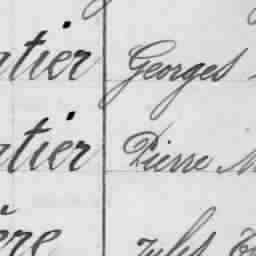 tier Georges
tier Pierre M
ère Jules